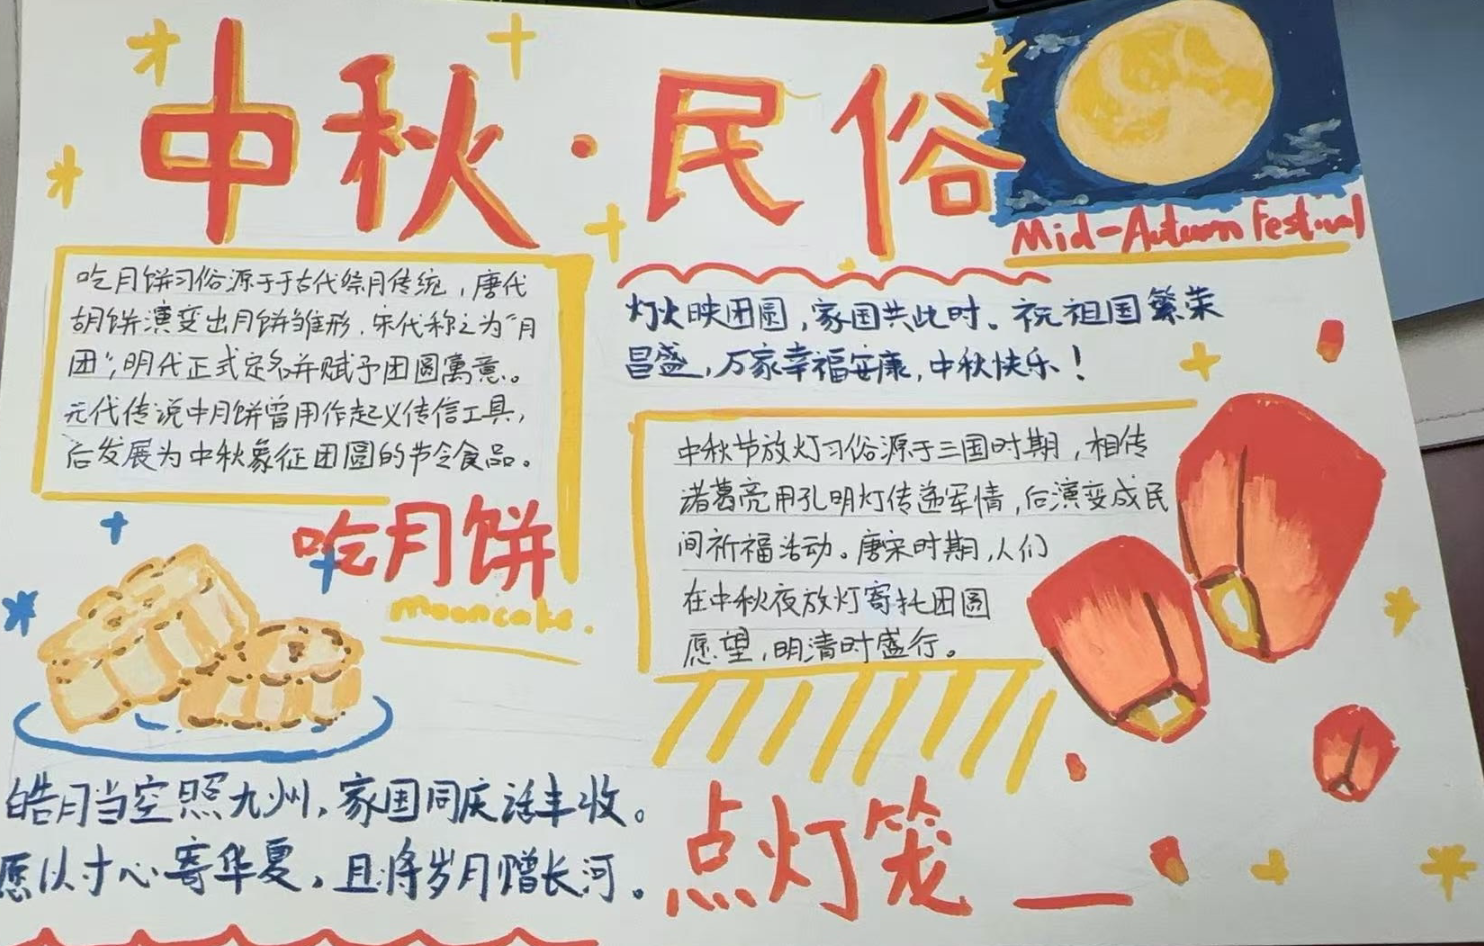 中秋·民俗
Mid-Autumn Festival
吃月饼习俗源于于古代祭月传统，唐代
胡饼演变出月饼雏形，宋代称之为“月
团”，明代正式定名并赋予团圆寓意。
元代传说中月饼曾用作起义传信工具，
后发展为中秋象征团圆的节令食品。
吃月饼
mooncake.
灯火映团圆，家国共此时。祝祖国繁荣
昌盛，万家幸福安康，中秋快乐！
中秋节放灯习俗源于三国时期，相传
诸葛亮用孔明灯传递军情，后演变成民
间祈福活动。唐宋时期，人们
在中秋夜放灯寄托团圆
愿望，明清时盛行。
点灯笼
皓月当空照九州，家国同庆话丰收。
愿以寸心寄华夏，且将岁月赠长河。